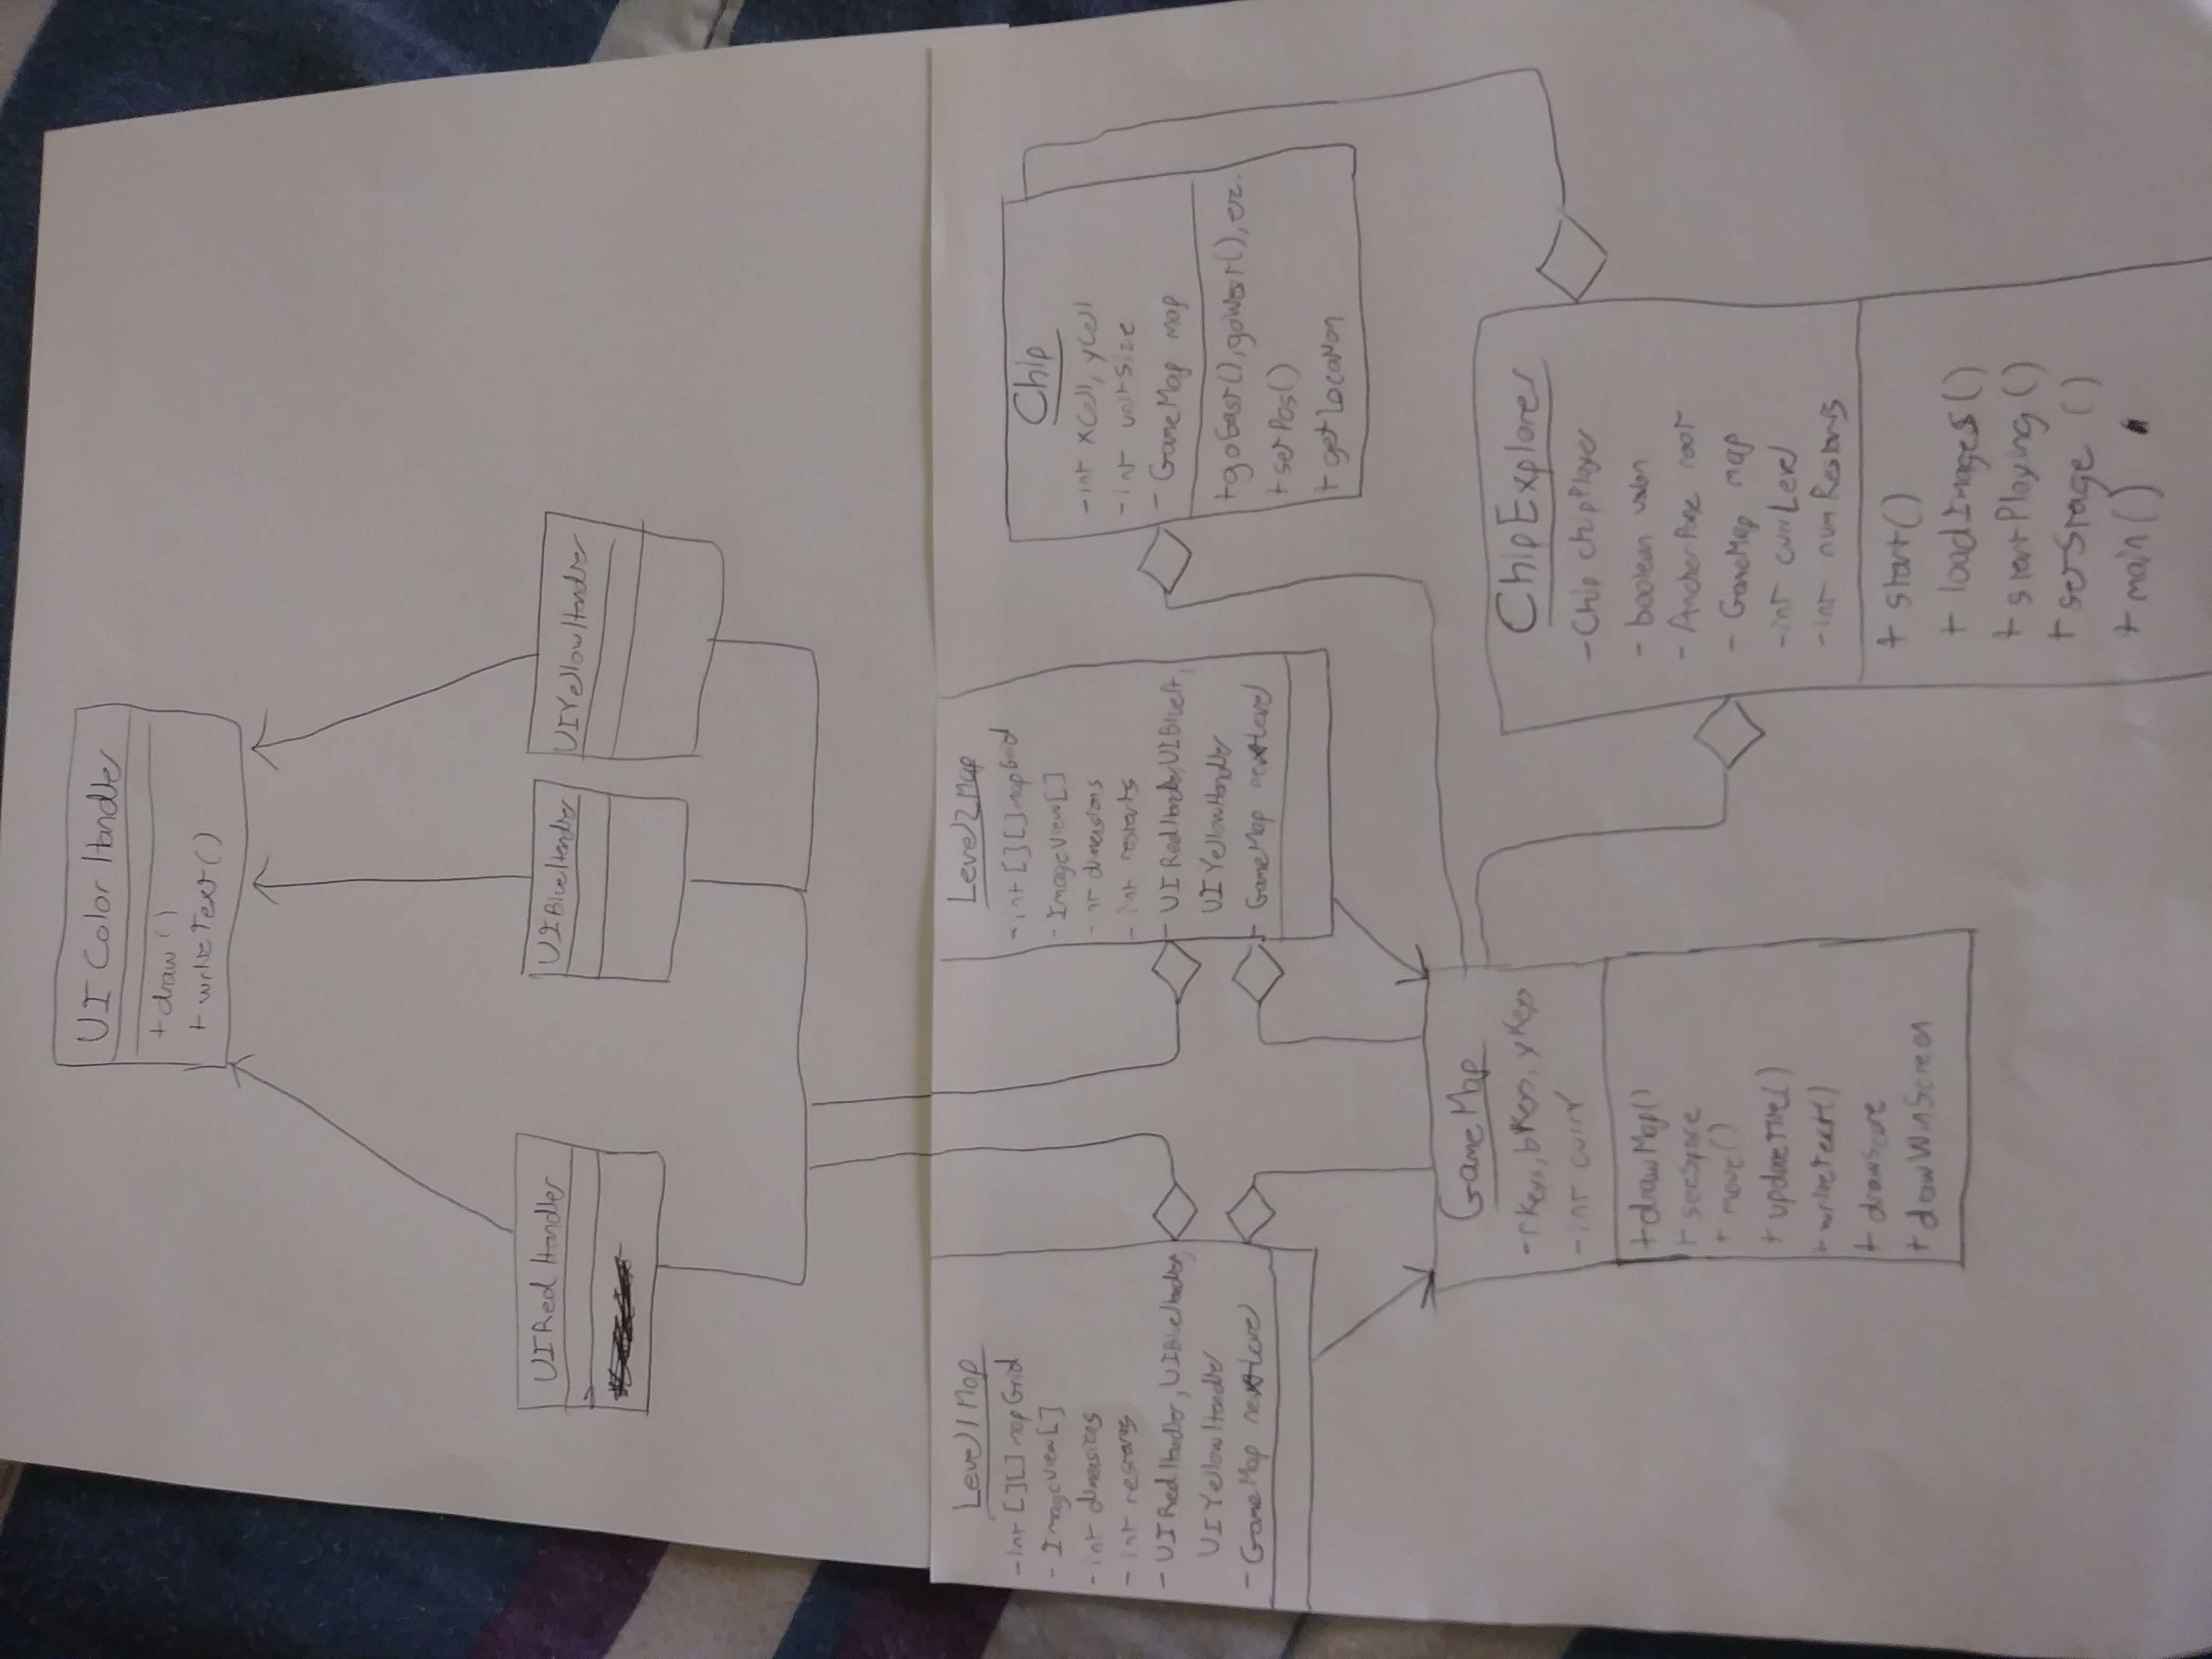 UI Color Handler
+ draw ()
+ writeText()
UIRed Handler
UIBlueHandler
UIYellowHandler
Level1Map
- int [][] mapGrid
- ImageView[]
- int dimensions
- int restarts
- UIRedHandler, UIBlueHandler,
UIYellowHandler
- GameMap nextLevel
Level2Map
- int [][] mapGrid
- ImageView[]
- int dimensions
- int restarts
- UIRedHandler, UIBlueH,
UIYellowHandler
- GameMap nextLevel
Chip
- int xCell, yCell
- int unitSize
- GameMap map
+ goEast(), goWest(), etc.
+ setPos()
+ getLocation
GameMap
- rKeys, bKeys, yKeys
- int currY
+ drawMap()
+ seeSpace
+ move()
+ updateTile()
+ writeText()
+ drawScore
+ drawWinScreen
ChipExplorer
- Chip chipPlayer
- boolean
- AnchorPane root
- GameMap map
- int currLevel
- int numRestarts
+ start()
+ loadImages()
+ startPlaying()
+ setStage ()
+ main()